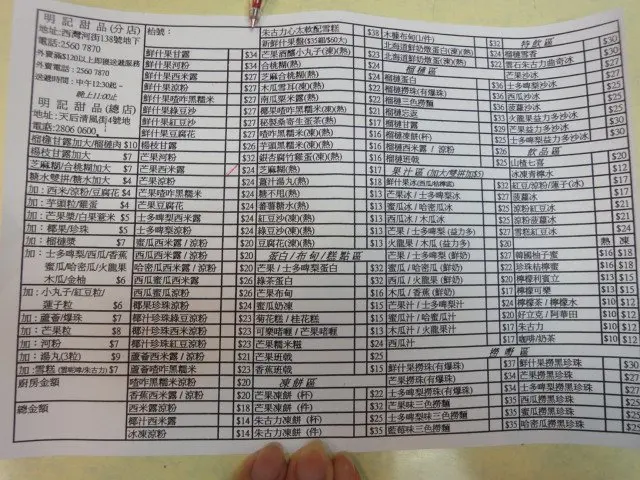 明記甜品(分店)
地址:西灣河街138號地下
電話:2560 7870
外賣滿$120以上即獲送遞服務
外賣電話:2560 7870
送遞時間:中午12:30起~
晚上11:00止
明記甜品(總店)
地址:天后清風街4號地
電話:2806 0600
榴槤甘露加大/榴槤肉 $10
楊枝甘露加大 $7
芝麻糊/合桃糊加大 $7
糖水雙拼/糖水加大 $4
加:西米/涼粉/豆腐花 $4
加:芋頭粒/雞蛋 $4
加:芒果漿/白果薏米 $5
加:椰果/珍珠 $5
加:榴槤漿 $7
加:士多啤梨/西瓜/香蕉
蜜瓜/哈蜜瓜/火龍果
木瓜/金柚 $6
加:小丸子/紅豆粒/
蓮子粒 $6
加:蘆薈/爆珠 $7
加:芒果粒 $8
加:河粉 $7
加:湯丸(3粒) $9
加:雪糕 $7
廚房金額
總金額
枱號:
鮮什果甘露 $34
鮮什果河粉 $34
鮮什果西米露 $27
鮮什果涼粉 $27
鮮什果喳咋黑糯米 $27
鮮什果綠豆沙 $27
鮮什果紅豆沙 $27
鮮什果豆腐花 $27
楊枝甘露 $26
芒果河粉 $32
芒果西米露 $24
芒果涼粉 $24
芒果喳咋黑糯米 $24
芒果豆腐花 $24
士多啤梨西米露 $24
士多啤梨涼粉 $24
蜜瓜西米露/涼粉 $20
哈密瓜西米露/涼粉 $20
西瓜西米露/涼粉 $20
蜜瓜蜜涼粉 $24
椰汁珍珠綠豆涼粉 $23
椰汁珍珠西米涼粉 $23
椰汁珍珠紅豆涼粉 $23
蘆薈西米露/涼粉 $21
喳咋黑糯米涼粉 $20
香蕉西米露/涼粉 $20
西米露涼粉 $18
椰汁西米露 $14
冰凍涼粉 $14
朱古力心太軟配雪糕 $38
新鮮什果盤($35細$60大)
芒果酒釀小丸子(凍)(熱) $34
合桃糊(熱) $23
芝麻合桃糊(熱) $22
木瓜雪耳(凍)(熱) $22
南瓜粟米露(熱) $22
椰果喳咋黑糯米(凍)(熱) $21
秘製桑寄生蛋茶(熱) $21
喳咋黑糯米(凍)(熱) $16
芋頭黑糯米(凍)(熱) $16
銀杏腐竹雞蛋(凍)(熱) $16
芝麻糊(熱) $17
薑汁湯丸(熱) $18
糖不甩(熱) $13
蕃薯糖水(熱) $13
紅豆沙(凍)(熱) $13
綠豆沙(凍)(熱) $13
豆腐花(凍)(熱) $13
蛋白/布甸/糕點區
芒果/士多啤梨蛋白 $32
綠茶蛋白 $32
芒果布甸 $16
蜜瓜奶凍
菊花糕/桂花糕 $13
可樂啫喱/芒果啫喱 $13
芒果黑糯米糍 $24
芒果班戟 $25
香蕉班戟 $15
凍餅區
芒果凍餅(杯) $22
芒果凍餅(件) $32
朱古力凍餅(杯) $25
朱古力凍餅(件) $35
木糠布甸(1件) $32
北海道鮮奶燉蛋白(凍)(熱) $24
北海道鮮奶燉蛋(凍)(熱) $22
榴槤區
榴槤蛋白
榴槤三色撈麵
榴槤忘返
榴槤甘露
榴槤凍餅(杯)
榴槤西米露
榴槤班戟
果汁區(加大/雙拼加$5)
鮮什果冰(西瓜/柚檸蜜)
芒果冰/士多啤梨冰
蜜瓜冰/哈密瓜冰
西瓜冰/木瓜冰
芒果/士多啤梨(益力多)
火龍果/木瓜(益力多)
芒果/士多啤梨(鮮奶)
蜜瓜/哈密瓜(鮮奶)
西瓜/火龍果(鮮奶)
木瓜/香蕉(鮮奶)
芒果汁/士多啤梨汁
蜜瓜汁/哈蜜瓜汁
木瓜汁/火龍果汁
西瓜汁
撈麵區
鮮什果撈珠(有爆珠) $37
芒果撈珠(有爆珠) $34
士多啤梨撈珠(有爆珠) $34
芒果味三色撈麵 $35
士多啤梨味三色撈麵 $35
藍莓味三色撈麵 $35
特飲區
榴槤雪香
雲石朱古力曲奇冰 $30
芒果沙冰 $30
士多啤梨沙冰 $30
西瓜沙冰 $30
菠蘿沙冰
火龍果益力多沙冰
芒果益力多沙冰
士多啤梨益力多沙冰 $30
飲品區
山楂七喜 $20
冰凍青檸水
紅豆/涼粉/蓮子(冰)
菠蘿冰
涼粉紅豆冰
涼粉菠蘿冰
雪糕紅豆冰
熱 凍
韓國柚子蜜 $16 $18
珍珠桔檸蜜
檸檬利賓立
檸檬可樂
檸檬茶/檸檬水
好立克/阿華田
朱古力
咖啡/奶茶 $10 $12
鮮什果撈黑珍珠 $30
芒果撈黑珍珠
士多啤梨撈黑珍珠
西瓜撈黑珍珠 $25
蜜瓜撈黑珍珠 $25
哈密瓜撈黑珍珠 $25